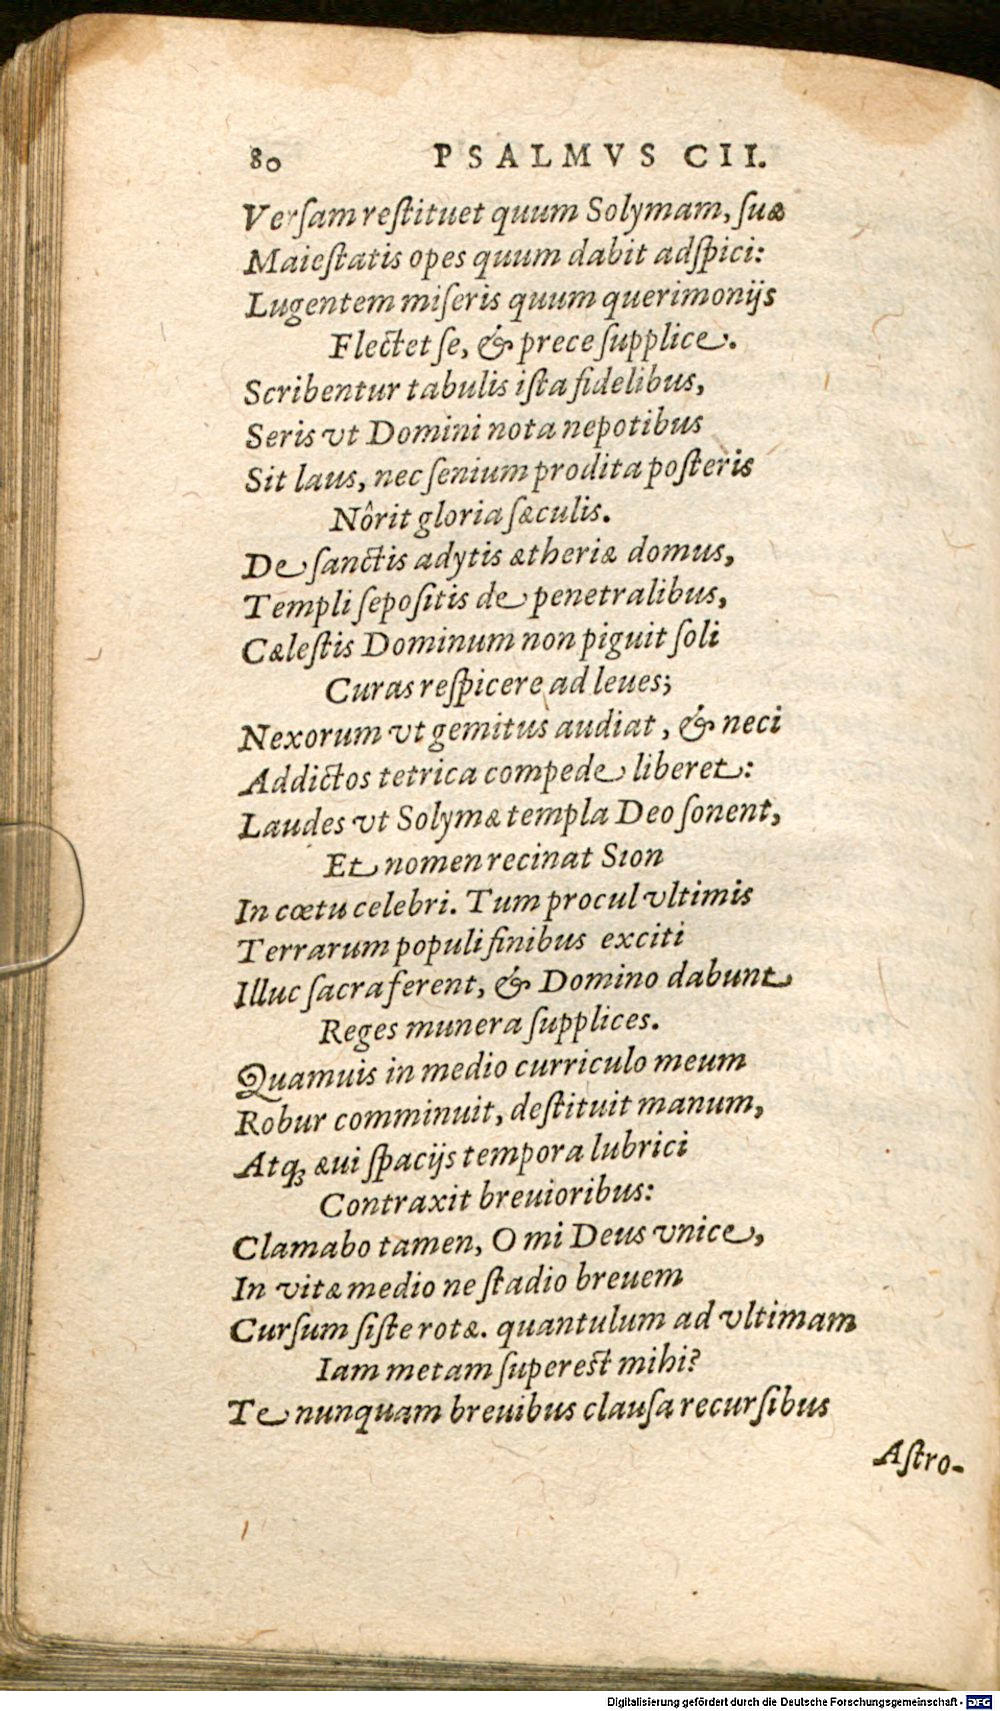 80 PSALMVS CII.
Verſam reſtituet quum Solymam, ſuæ
Maieſtatis opes quum dabit adſpici:
Lugentem miſeris quum querimonijs
Flectet ſe, & prece ſupplice.
Scribentur tabulis iſta fidelibus,
Seris vt Domini nota nepotibus
Sit laus, nec ſenium prodita poſteris
Nôrit gloria ſæculis.
De ſanctis adytis ætheriæ domus,
Templi ſepoſitis de penetralibus,
Cæleſtis Dominum non piguit ſoli
Curas reſpicere ad leues;
Nexorum vt gemitus audiat, & neci
Addictos tetrica compede liberet:
Laudes vt Solymæ templa Deo ſonent,
Et nomen recinat Sion
In cœtu celebri. Tum procul vltimis
Terrarum populi finibus exciti
Illuc ſacra ferent, & Domino dabunt
Reges munera ſupplices.
Quamuis in medio curriculo meum
Robur comminuit, deſtituit manum,
Atq; æui ſpacijs tempora lubrici
Contraxit breuioribus:
Clamabo tamen, O mi Deus vnice,
In vitæ medio ne ſtadio breuem
Curſum ſiſte rotæ. quantulum ad vltimam
Iam metam ſupereſt mihi?
Te nunquam breuibus clauſa recurſibus
Aſtro-
Digitalisierung gefördert durch die Deutsche Forschungsgemeinschaft - DFG